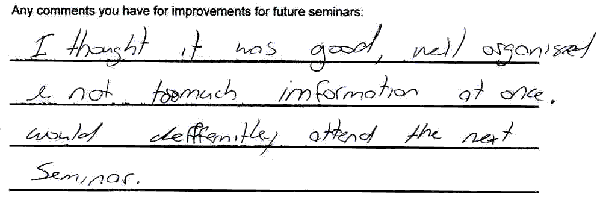 Any comments you have for improvements for future seminars:
I thought it was good, well organised
& not toomuch imformation at once.
would deffenitley attend the next
Seminar.